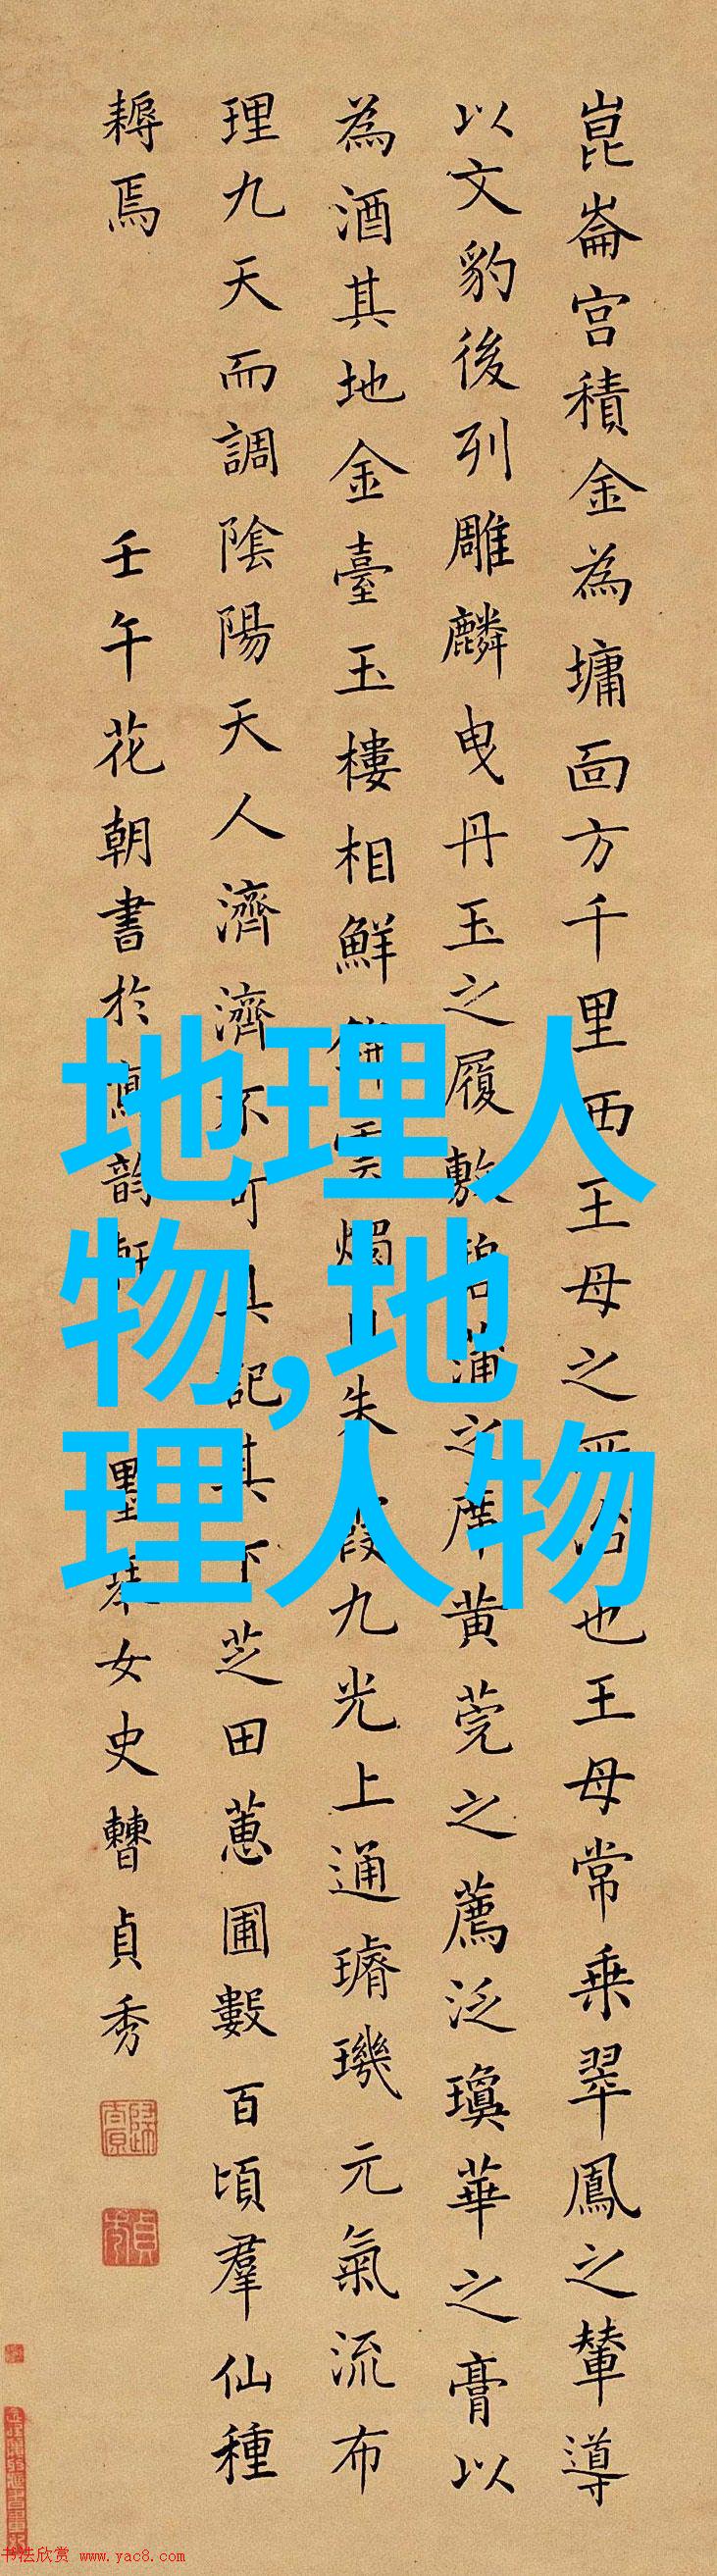 崑崙宮積金為墉面方千里西王母之也王母常乘翠鳳之輦導
以文豹後列雕麟曳丹玉之履敷碧蒲之席黄莞之薦泛瓊華之膏以
為酒其地金臺玉樓相鮮雲燭日朱霞九光上通璿璣元氣流布
理九天而調陰陽天人濟濟不可具記其下芝田蕙圃數百頃羣仙種
耨焉
壬午花朝書於韵軒
墨琴女史曹貞秀
地理人
物,地
理人物
书法欣赏 www.yac8.com